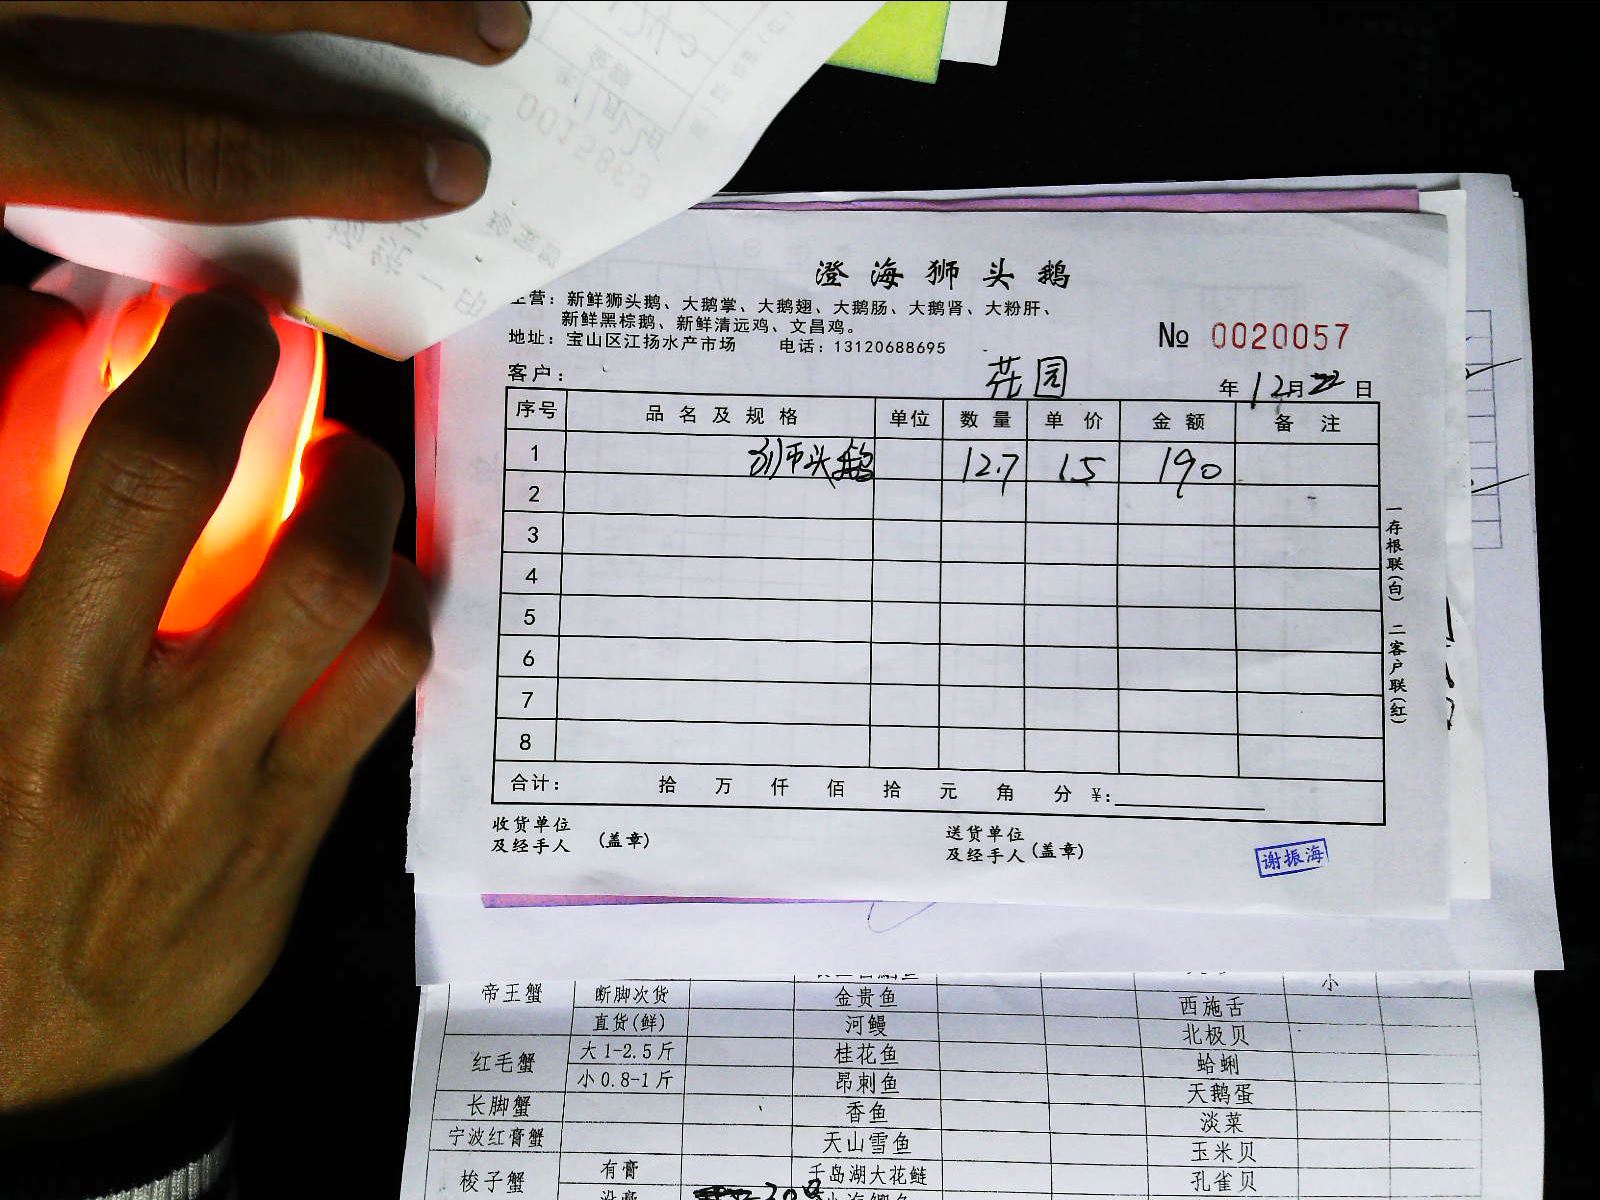 0015869
澄海狮头鹅
主营：新鲜狮头鹅、大鹅掌、大鹅翅、大鹅肠、大鹅肾、大粉肝、
新鲜黑棕鹅、新鲜清远鸡、文昌鸡。
地址：宝山区江扬水产市场 电话：13120688695
№ 0020057
客户： 花园 年 12月 22 日
序号 品名及规格 单位 数量 单价 金额 备注
1 狮头鹅 12.7 15 190
2
3
4
5
6
7
8
合计： 拾 万 仟 佰 拾 元 角 分 ¥:
一存根联(白) 二客户联(红)
收货单位
及经手人 (盖章)
送货单位
及经手人 (盖章)
谢振海
小
帝王蟹 断脚次货 金贵鱼 西施舌
直货(鲜) 河鳗 北极贝
红毛蟹 大1-2.5斤 桂花鱼 蛤蜊
小0.8-1斤 昂刺鱼 天鹅蛋
长脚蟹 香鱼 淡菜
宁波红膏蟹 天山雪鱼 玉米贝
梭子蟹 有膏 千岛湖大花鲢 孔雀贝